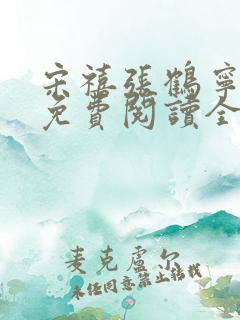 宋禧張鶴寧
免費閱讀全
麥克盧尔
未经同意禁止转载